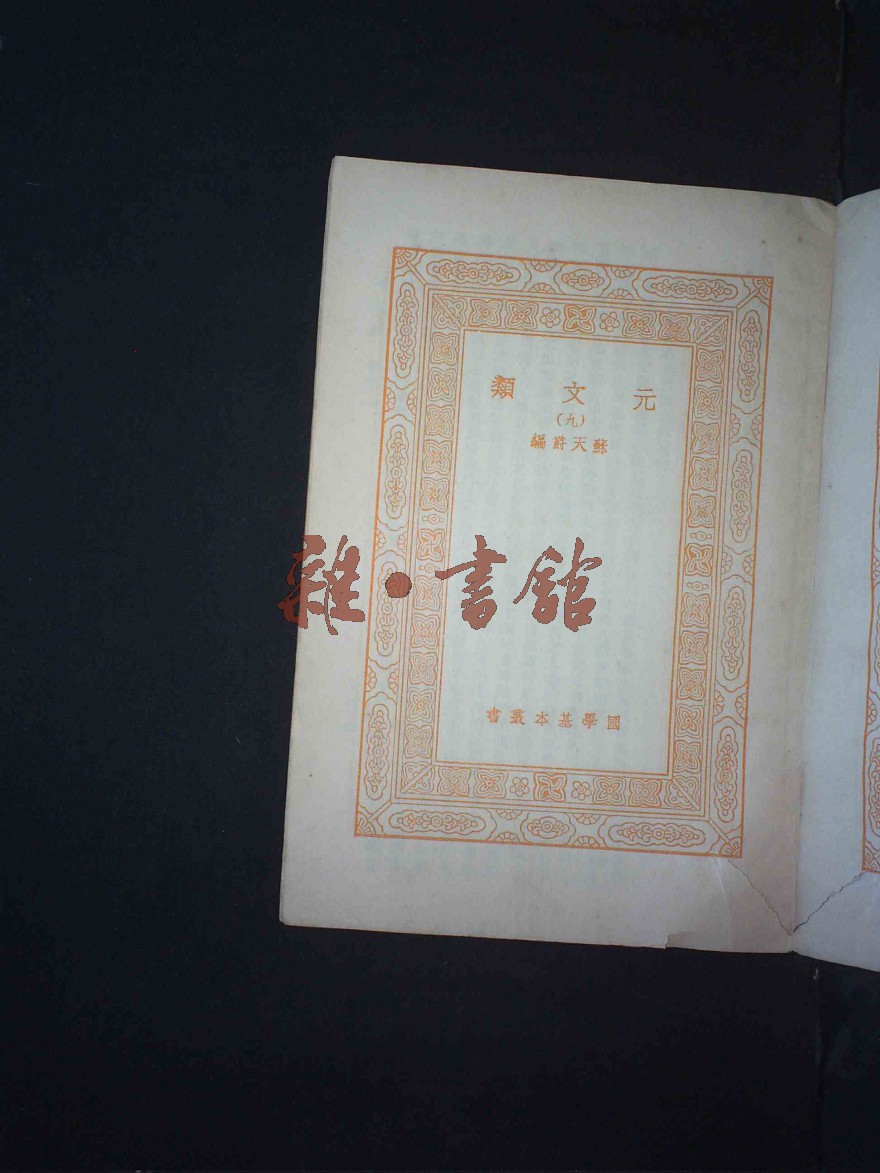 元文類
(九)
蘇天爵編
雜·書館
國學基本叢書